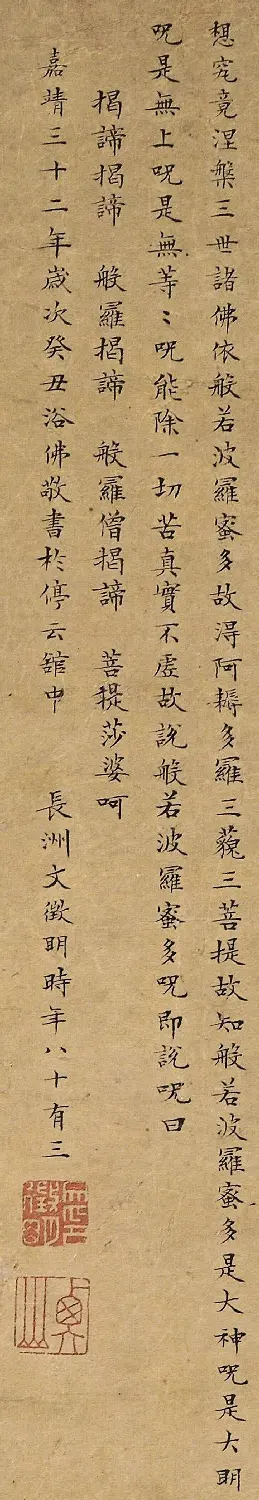 想究竟涅槃三世諸佛依般若波羅蜜多故得阿耨多羅三藐三菩提故知般若波羅蜜多是大神呪是大明
呪是無上呪是無等〻呪能除一切苦真實不虛故說般若波羅蜜多呪即說呪曰
揭諦揭諦　般羅揭諦　般羅僧揭諦　菩提莎婆呵
嘉靖三十二年歲次癸丑浴佛敬書於停云館中　長洲文徵明時年八十有三
徵明